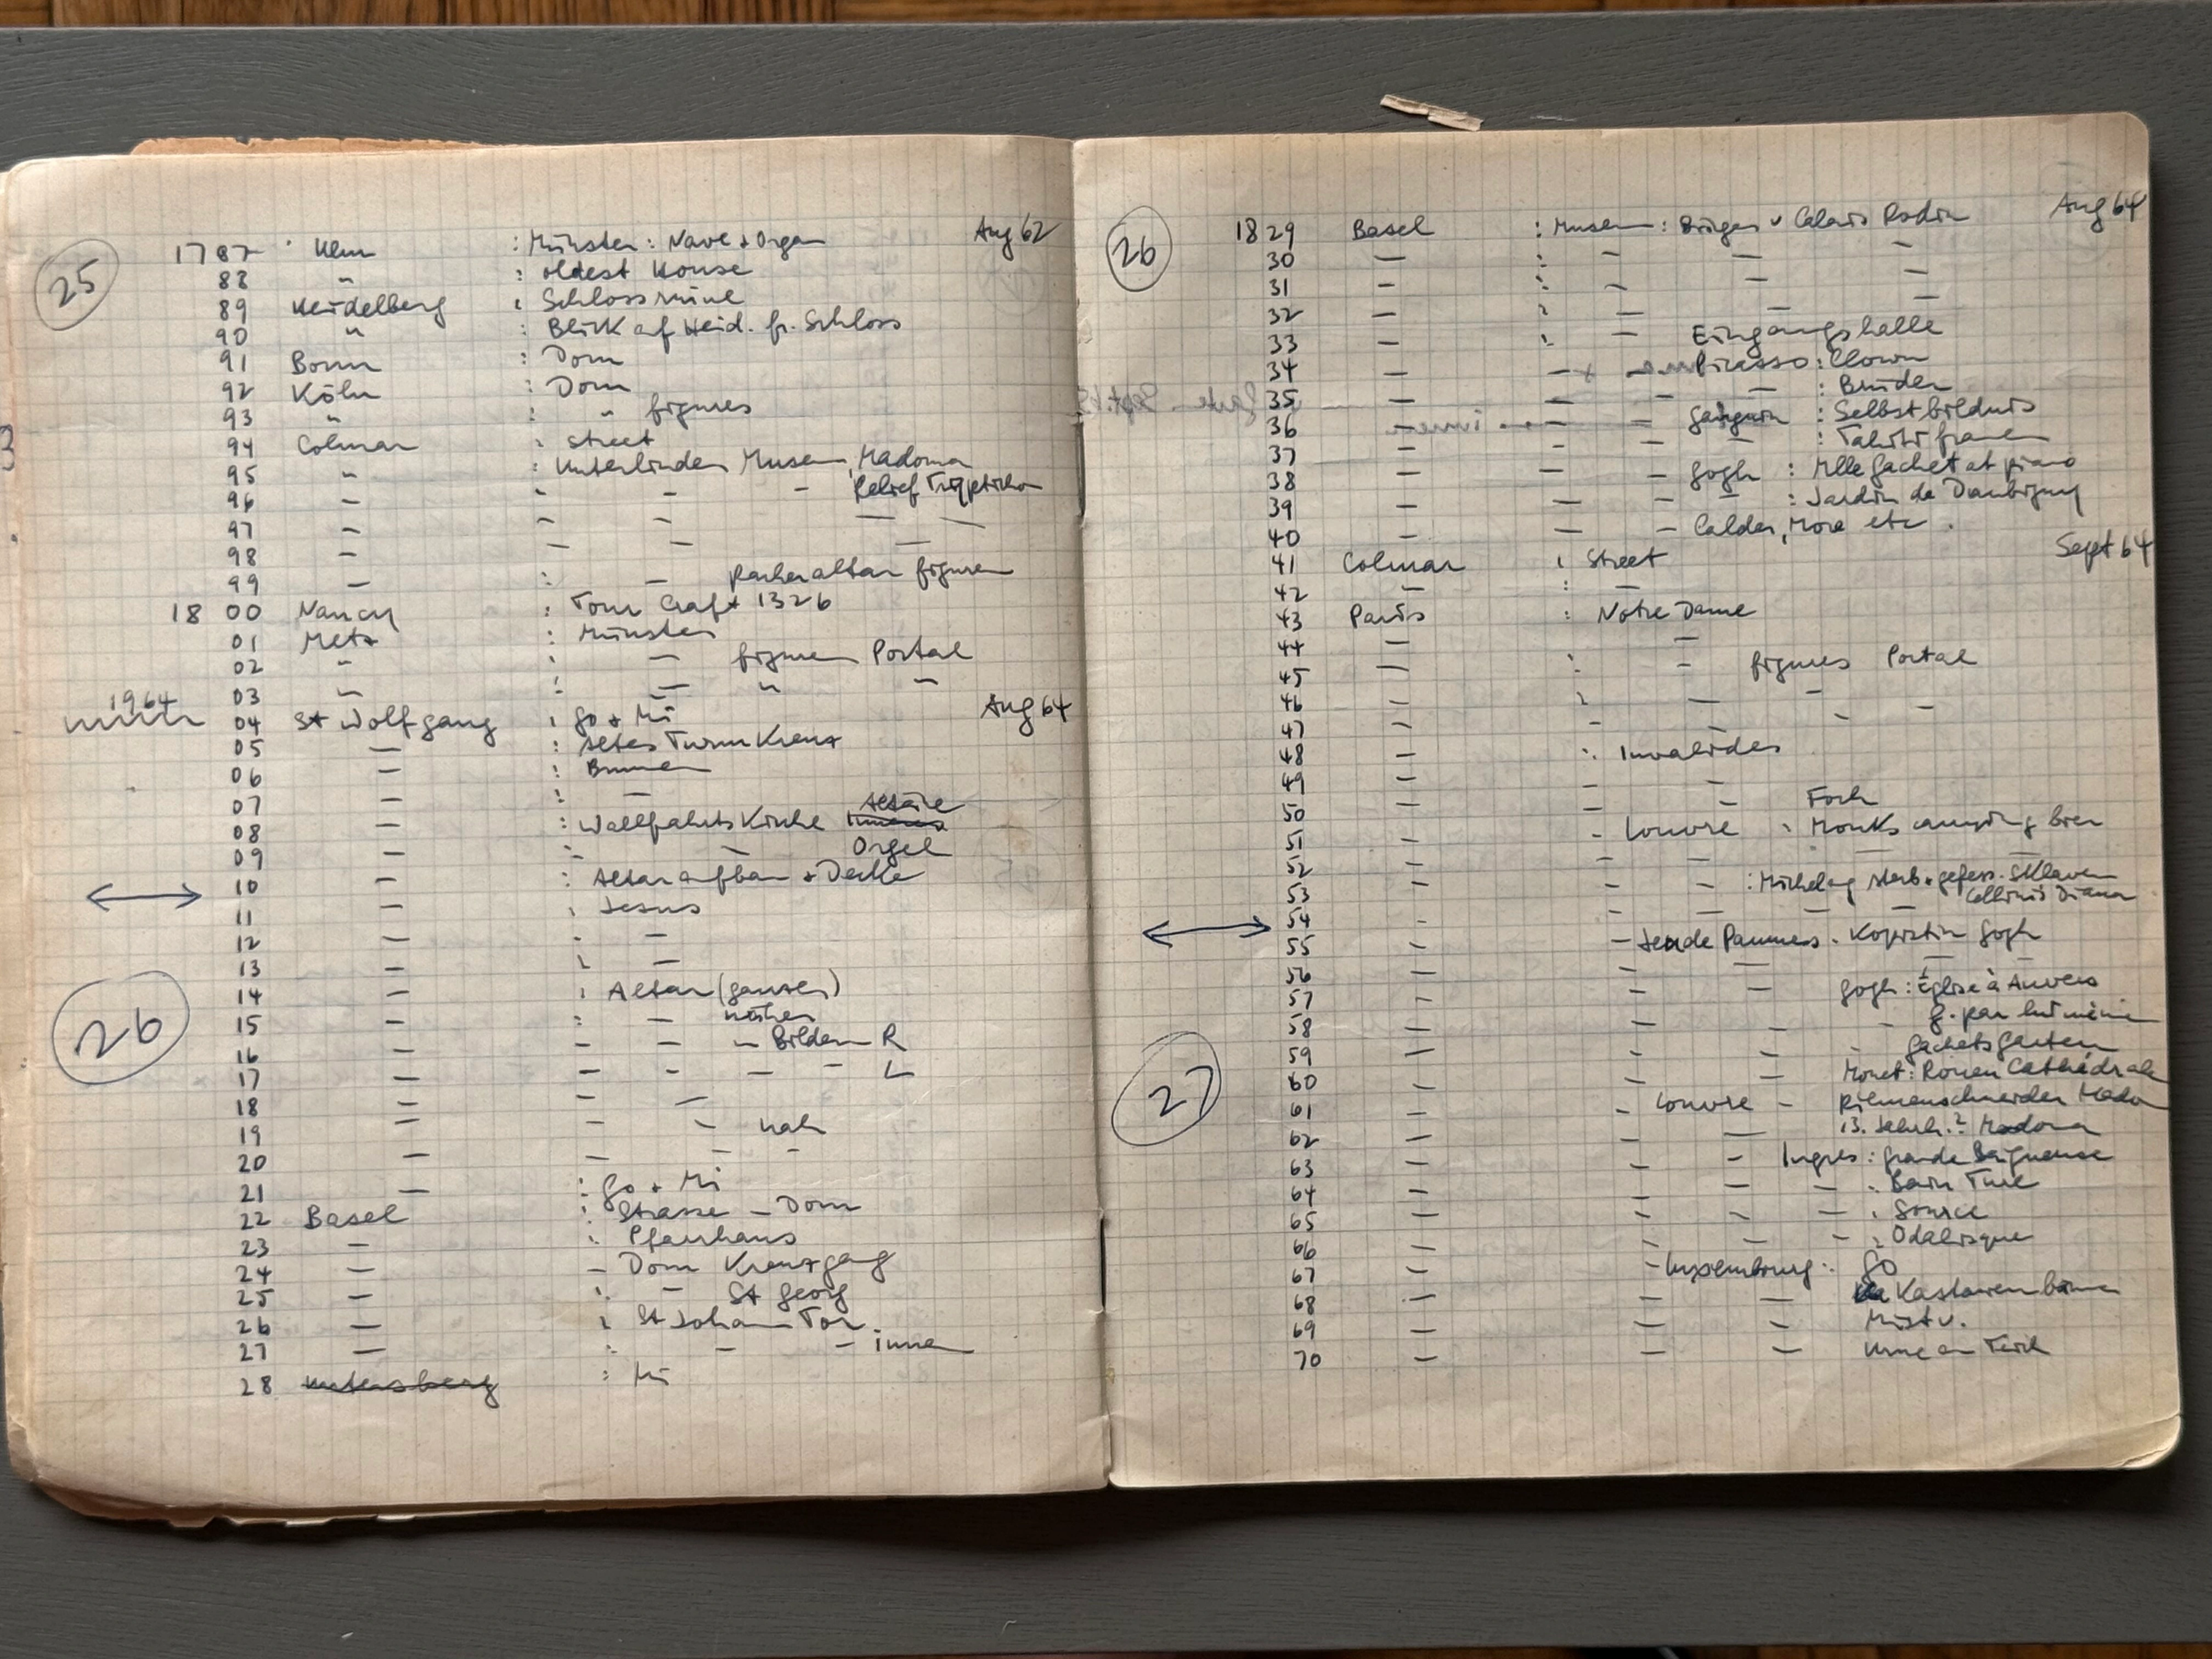 25
1787 Ulm : Münster : Nave + Organ Aug 62
88 " : oldest House
89 Heidelberg : Schlossruine
90 " : Blick auf Heid. fr. Schloss
91 Bonn : Dom
92 Köln : Dom
93 " : " figures
94 Colmar : Street
95 " : Unterlinden Museum, Madonna
96 – – – – Relief Triptichon
97 – – – – –
98 – – – –
99 – : – altar figuren
1800 Nancy : Tour Craft 1326
01 Metz : Münster
02 " : – figuren Portal
03 " : – " –
1964
04 St Wolfgang : Go + Mi Aug 64
05 – : Altes Turm Kreuz
06 – : Brunnen
07 – : –
08 – : Wallfahrts Kirche Altäre
09 – : – Orgel
10 – : Altaraufbau + Decke
11 – : Jesus
12 – : –
13 – : –
14 – : Altar (ganzer)
26
15 – : – näher
16 – – – – Bilder R
17 – – – – – L
18 – – –
19 – – – nah
20 – – – –
21 – : Go + Mi
22 Basel : Strasse – Dom
23 – : Pfarrhaus
24 – – Dom Kreuzgang
25 – : – St Georg
26 – : St Johann Tor
27 – : – – innen
28 Untersberg : Mi
26
1829 Basel : Museum : Bürger v Calais Rodin Aug 64
30 – : – – –
31 – : – – –
32 – : – – –
33 – : – Eingangshalle
34 – – Picasso : Clown
35 – – – : Brüder
36 – – – Gauguin : Selbstbildnis
37 – – – – : Tahiti frauen
38 – – – Gogh : Mlle Gachet at piano
39 – – – – : Jardin de Daubigny
40 – – – Calder, More etc.
41 Colmar : Street Sept 64
42 – : –
43 Paris : Notre Dame
44 – –
45 – : – figures Portal
46 – : – –
47 – – – –
48 – : Invalides
49 – – –
50 – – – Foch
51 – – Louvre : Monks carrying bier
52 – – – – –
53 – – – : Michelag sterb. + gefess. Sklaven
Cellinis Diana
54 – – – – –
55 – – Jeu de Paumes . Kopistin Gogh
56 – – – –
57 – – – Gogh : Église à Auvers
58 – – – – G. par lui même
59 – – – – Gachets Garten
60 – – – Monet : Rouen Cathédrale
27
61 – – Louvre – Riemenschneider Mado
62 – – – 13. Jahrh.? Madonna
63 – – – Ingres : Grande Baigneuse
64 – – – – : Bain Turc
65 – – – – : Source
66 – – – – : Odalisque
67 – – Luxembourg : Go
68 – – – Kastanienbäume
69 – – – Mi
70 – – – Urne an Teich